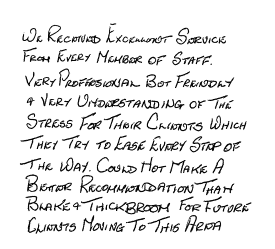 We Received Excellent Service
From Every Member of Staff.
Very Proffesional But Freindly
& Very Understanding of The
Stress For Their Clients Which
They Try to Ease Every Step of
The Way. Could Not Make A
Better Recommendation Than
Blake & Thickbroom For Future
Clients Moving To This Area